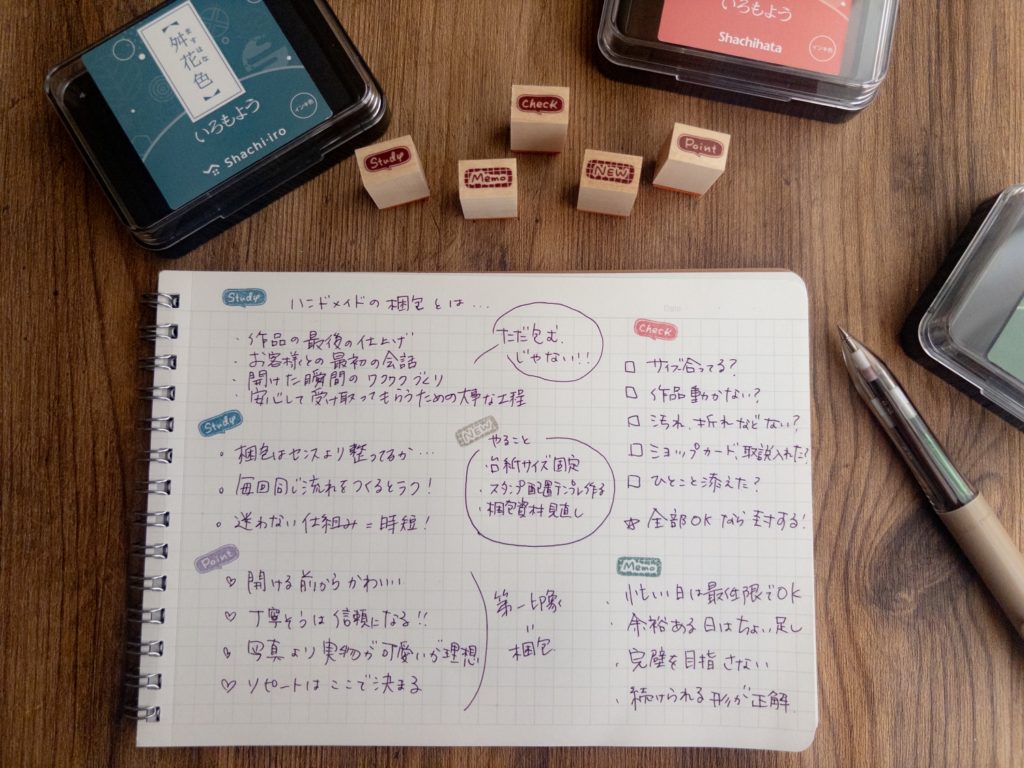 【舛花色】
ますはな
いろもよう
インキ色
Shachi-iro
いろもよう
Shachihata
インキ色
Check
Study
Memo
NEW
Point
Study
ハンドメイドの梱包とは…
・作品の最後の仕上げ
・お客様との最初の会話
・開けた瞬間のワクワクづくり
・安心して受け取ってもらうための大事な工程
ただ包む、
じゃない!!
Study
。梱包はセンスより整ってるか…
。毎回同じ流れをつくるとラク!
。迷わない仕組み=時短!
NEW
やること
・台紙サイズ固定
・スタンプ配置テンプレ作る
・梱包資材見直し
Point
♡ 開ける前からかわいい
♡ 丁寧そうは信頼になる!!
♡ 写真より実物が可愛いが理想
♡ リピートはここで決まる
第一印象
=
梱包
Date
Check
□ サイズ合ってる?
□ 作品動かない?
□ 汚れ、折れなどない?
□ ショップカード、取説入れた?
□ ひとこと添えた?
☆ 全部OKなら封する!
Memo
・忙しい日は最低限でOK
・余裕ある日はちょい足し
・完璧を目指さない
・続けられる形が正解